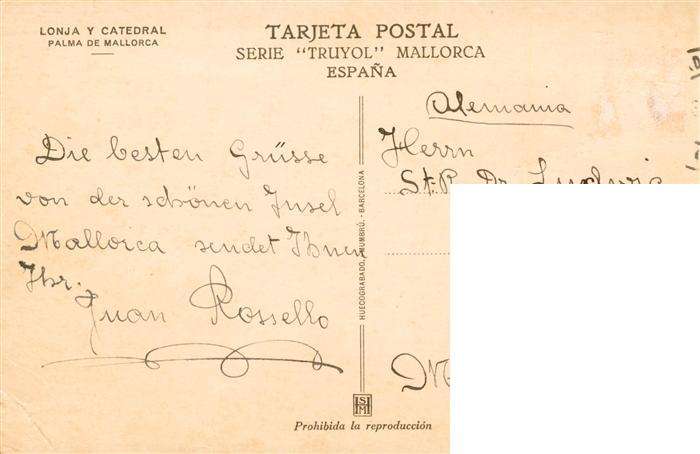 LONJA Y CATEDRAL
PALMA DE MALLORCA
TARJETA POSTAL
SERIE "TRUYOL" MALLORCA
ESPAÑA
Die besten Grüsse
von der schönen Insel
Mallorca sendet Ihnen
Ihr.
Juan Rossello
HUECOGRABADO, MUMBRÚ.-BARCELONA
Alemania
Herrn
St.R. Dr. Ludwig
Prohibida la reproducción